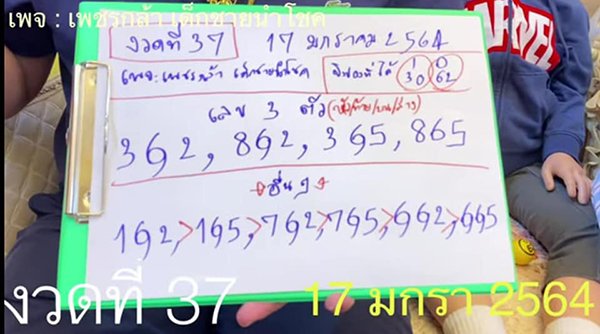 เพจ : เพชรกล้า เด็กชายนำโชค
งวดที่ 37 17 มกราคม 2564
เพจ:เพชรกล้า เด็กชายนำโชค
1 0
30 62
เลข 3 ตัว
362, 862, 365, 865
อื่นๆ
162, 165, 762, 765, 662, 665
งวดที่ 37 17 มกรา 2564
NEL